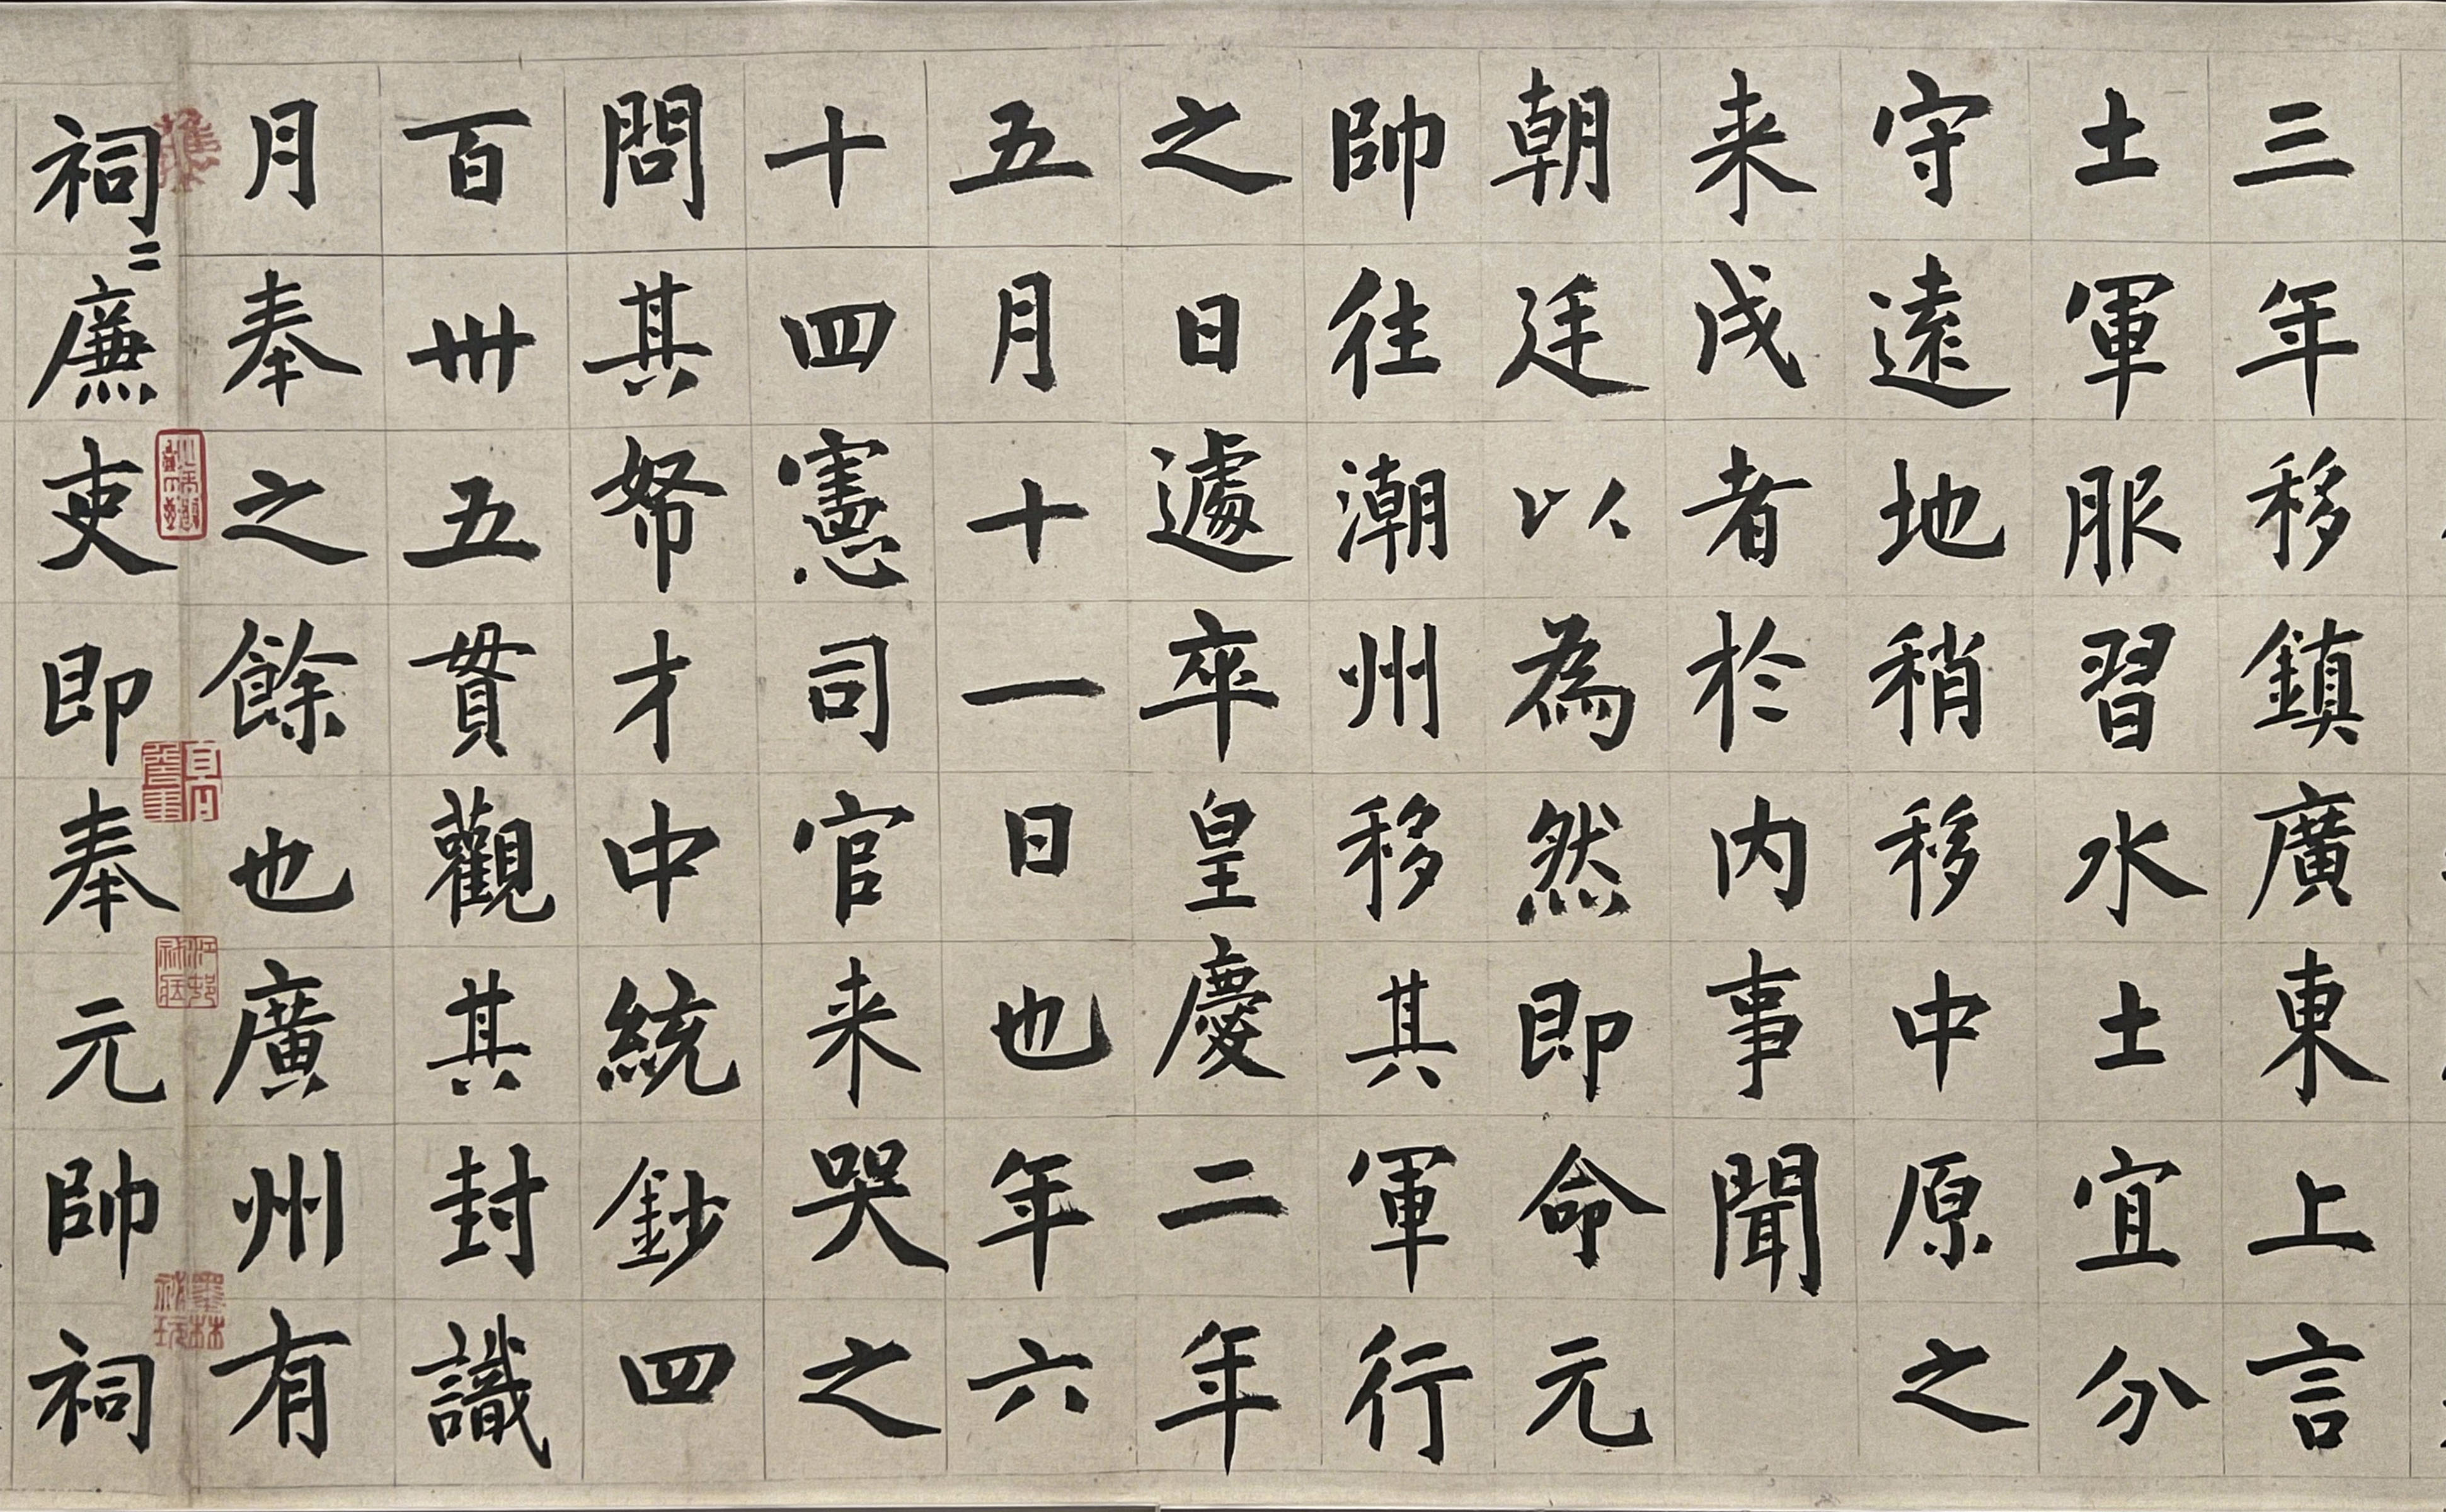 三年移鎮廣東上言
土軍服習水土宜分
守遠地稍移中原之
来戍者於内事聞
朝廷以為然即命元
帥往潮州移其軍行
之日遽卒皇慶二年
五月十一日也年六
十四憲司官来哭之
問其帑才中統鈔四
百卌五貫觀其封識
月奉之餘也廣州有
祠〻廉吏即奉元帥祠